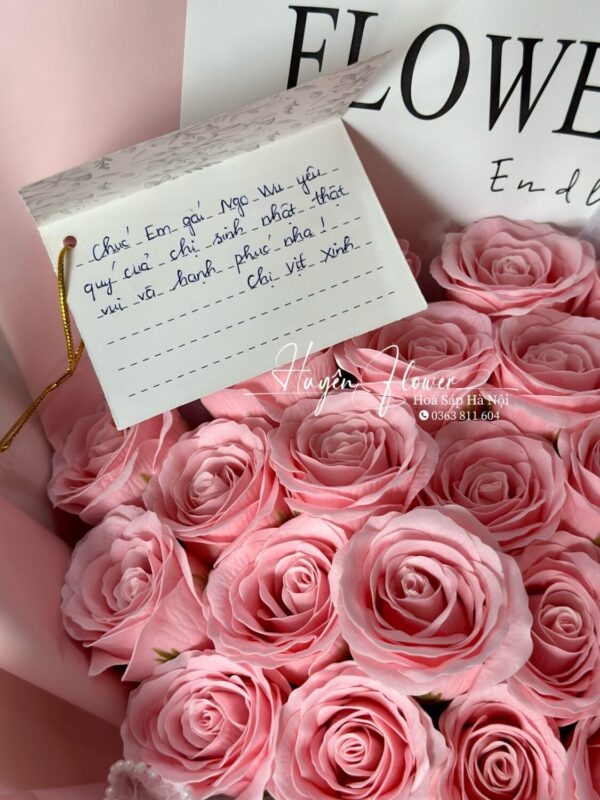 FLOWE
Endl
Chúc Em gái Ngo Wu yêu
quý của chị sinh nhật thật
vui và hạnh phúc nha!
Chị Vịt Xinh
Huyên Flower
Hoa Sáp Hà Nội
0363 811 604